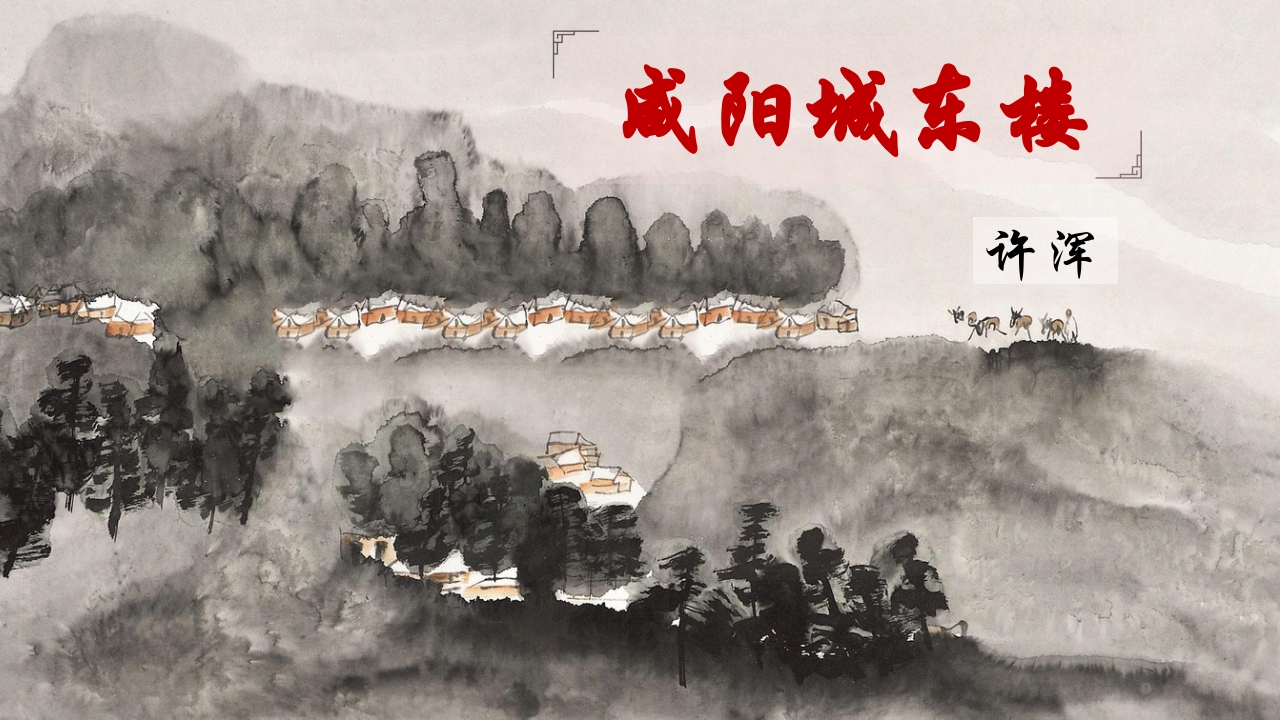 咸阳城东楼
许浑